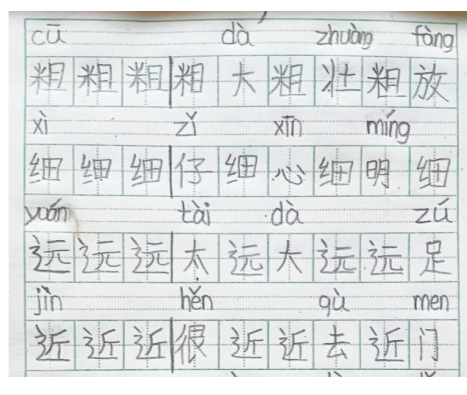 cū dà zhuàng fàng
粗粗粗粗大粗壮粗放
xì zǐ xīn míng
细细细仔细心细明细
yuǎn tài dà zú
远远远太远大远远足
jìn hěn qù men
近近近很近近去近门